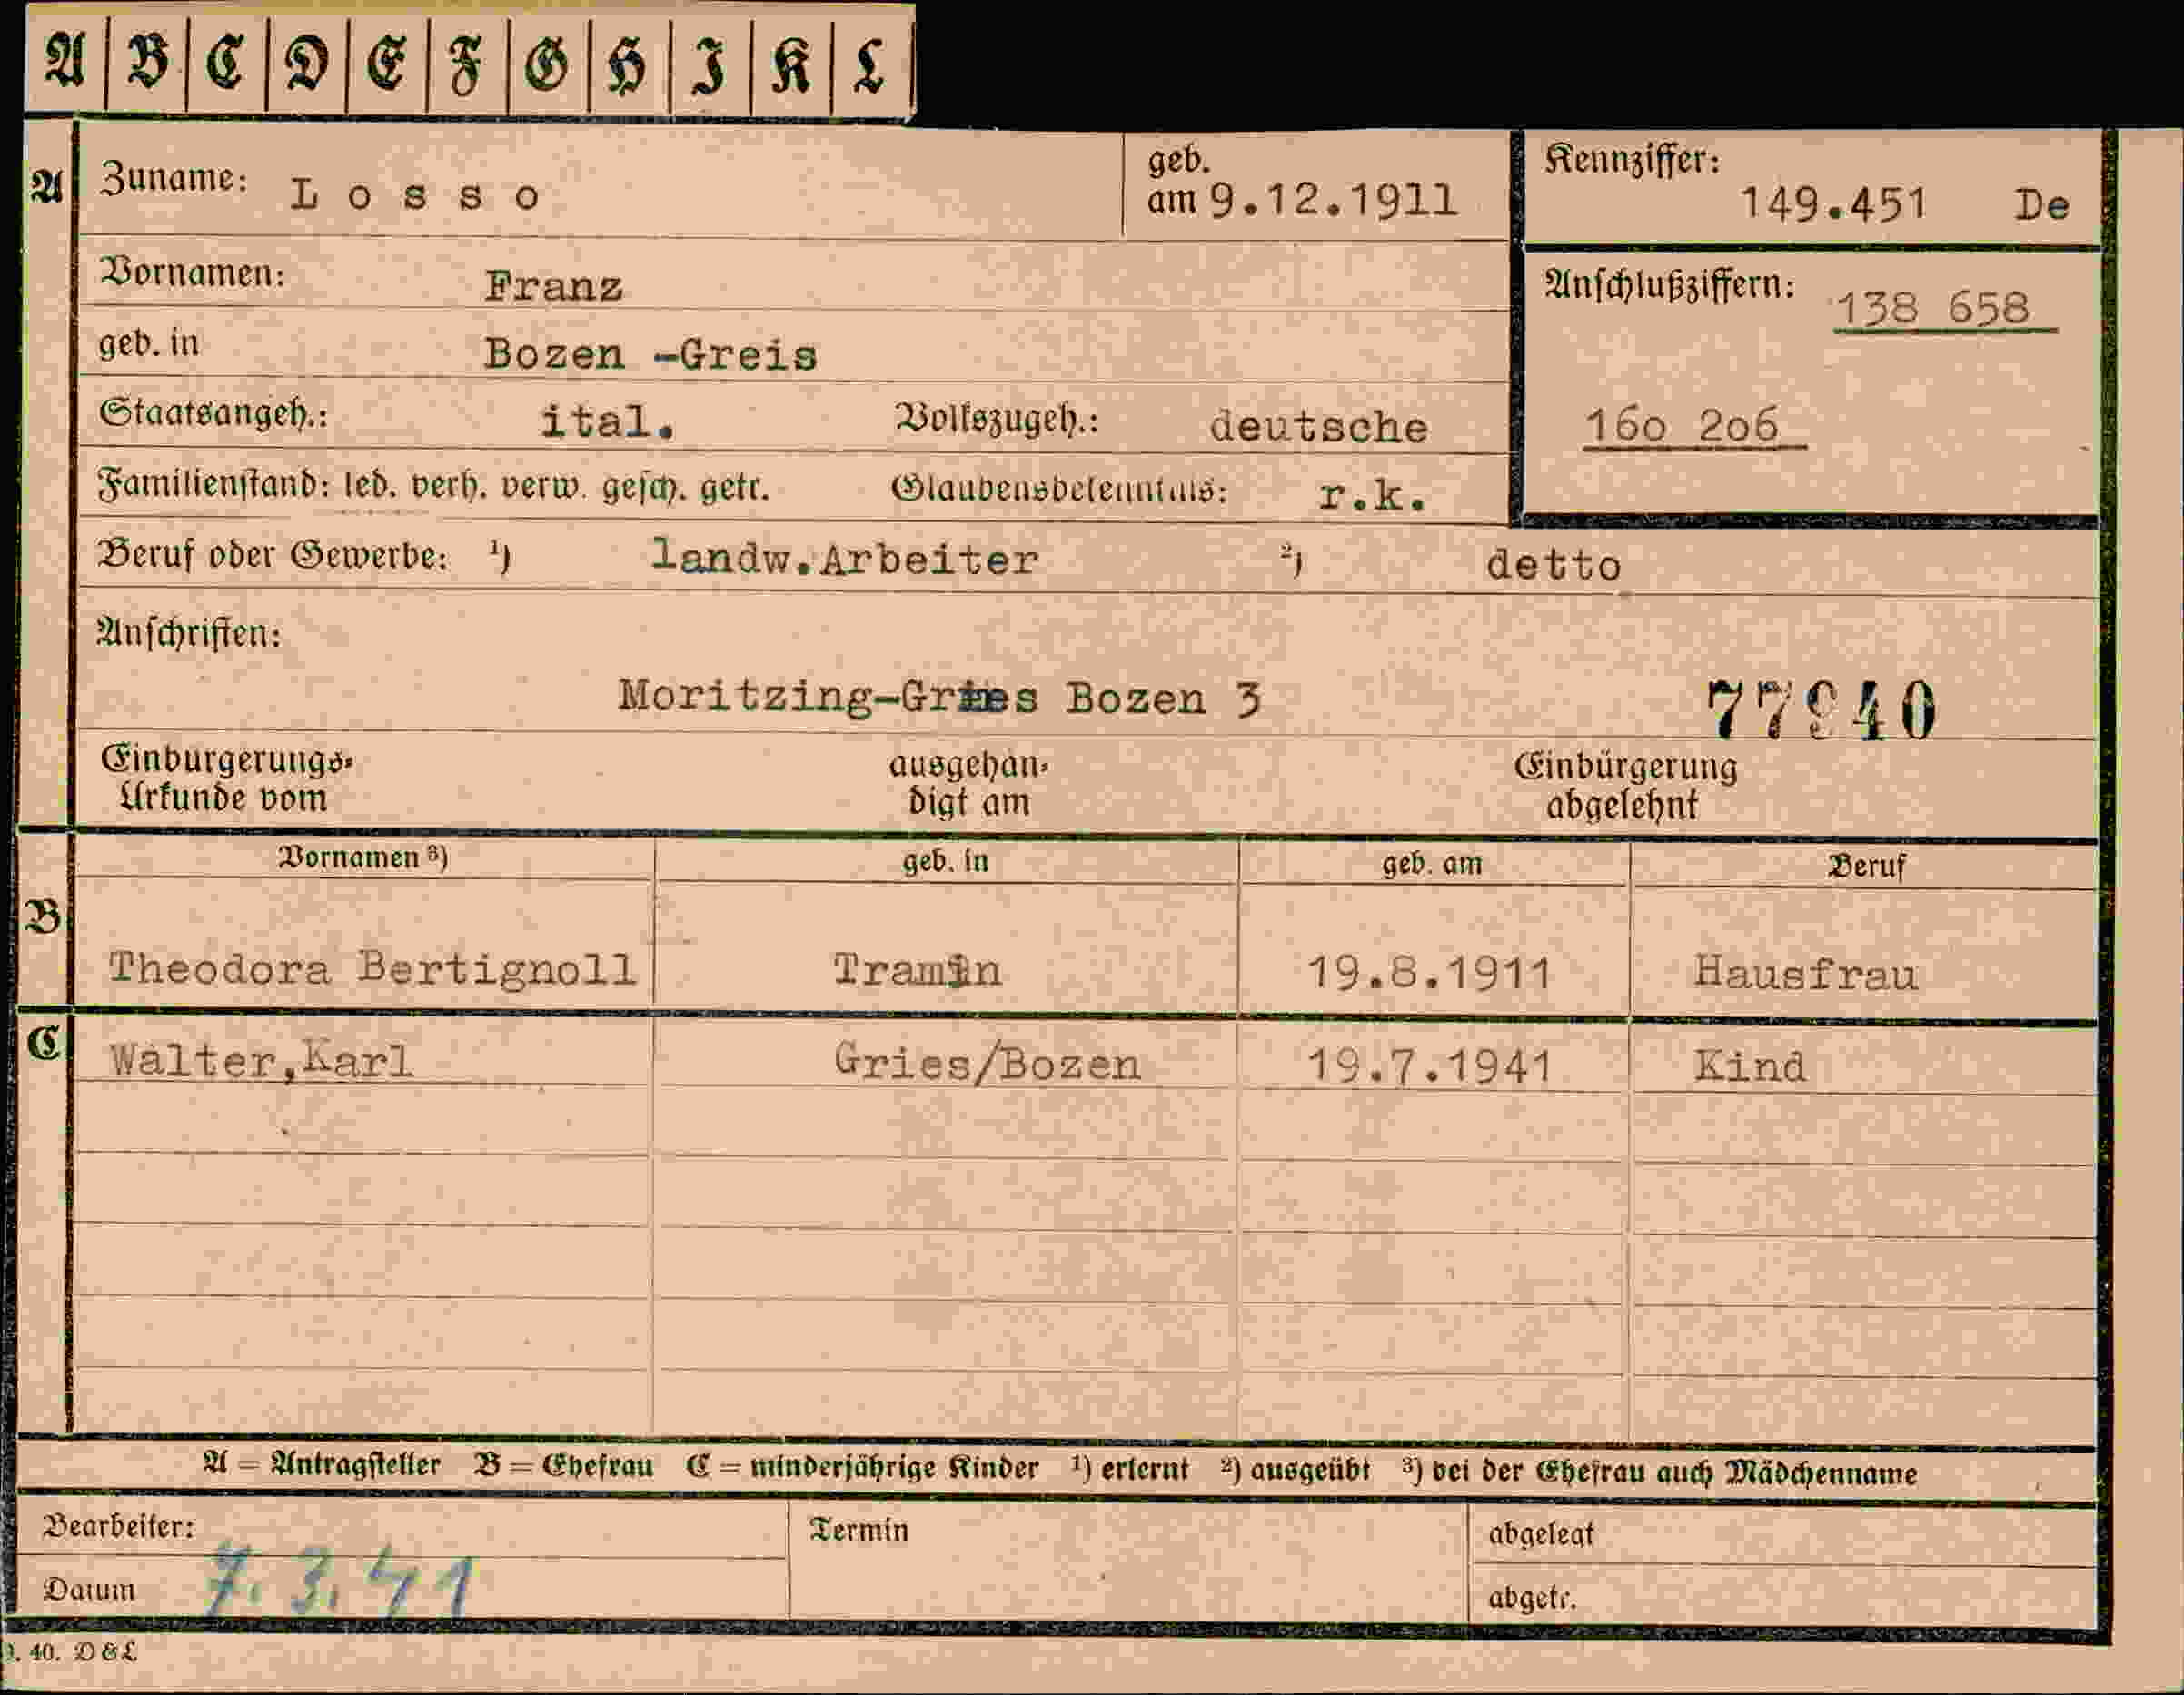 A B C D E F G H I K L
A Zuname: Losso geb. am 9.12.1911 Kennziffer: 149.451 De
Vornamen: Franz
Anschlußziffern: 138 658
geb. in Bozen -Greis
Staatsangeh.: ital. Volkszugeh.: deutsche 16o 2o6
Familienstand: led. verh. verw. gesch. getr. Glaubensbekenntnis: r.k.
Beruf oder Gewerbe: ¹) landw.Arbeiter ²) detto
Anschriften:
Moritzing-Gries Bozen 3 77940
Einbürgerungs- ausgehän- Einbürgerung
Urkunde vom digt am abgelehnt
Vornamen ³) geb. in geb. am Beruf
B
Theodora Bertignoll Tramin 19.8.1911 Hausfrau
C Walter,Karl Gries/Bozen 19.7.1941 Kind
A = Antragsteller B = Ehefrau C = minderjährige Kinder ¹) erlernt ²) ausgeübt ³) bei der Ehefrau auch Mädchenname
Bearbeiter: Termin abgelegt
Datum 7.3.41 abgetr.
40. D & L